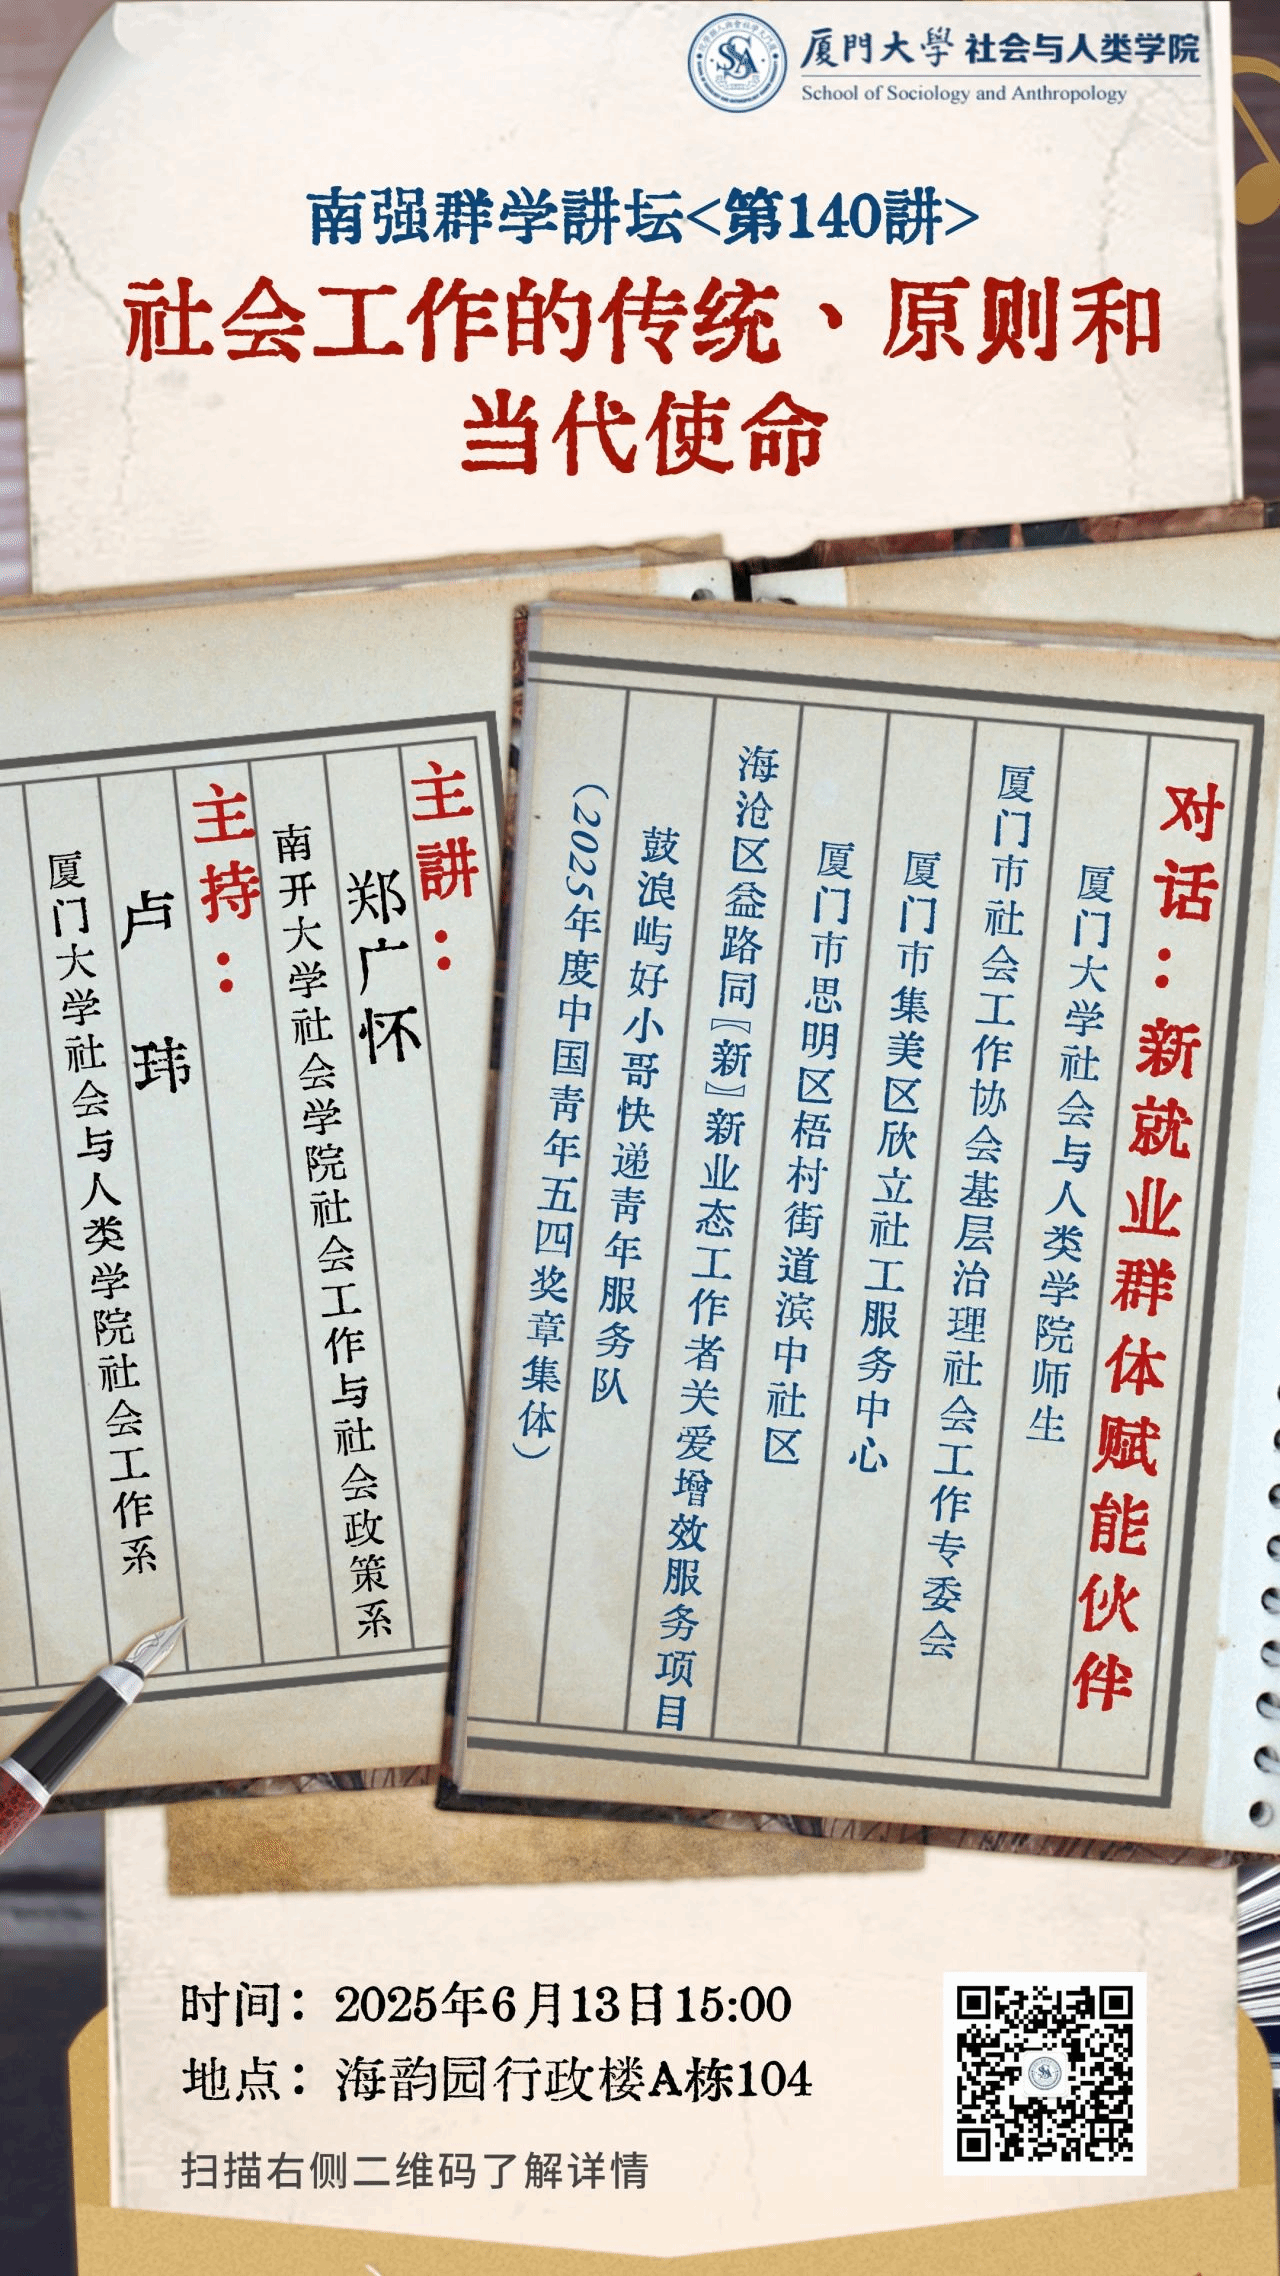 厦門大學 社会与人类学院
School of Sociology and Anthropology
南强群学講坛<第140講>
社会工作的传统、原则和
当代使命
对话：新就业群体赋能伙伴
厦门大学社会与人类学院师生
厦门市社会工作协会基层治理社会工作专委会
厦门市集美区欣立社工服务中心
厦门市思明区梧村街道滨中社区
海沧区益路同〖新〗新业态工作者关爱增效服务项目
鼓浪屿好小哥快递青年服务队
（2025年度中国青年五四奖章集体）
主講：
郑广怀
南开大学社会学院社会工作与社会政策系
主持：
卢 玮
厦门大学社会与人类学院社会工作系
时间：2025年6月13日15:00
地点：海韵园行政楼A栋104
扫描右侧二维码了解详情